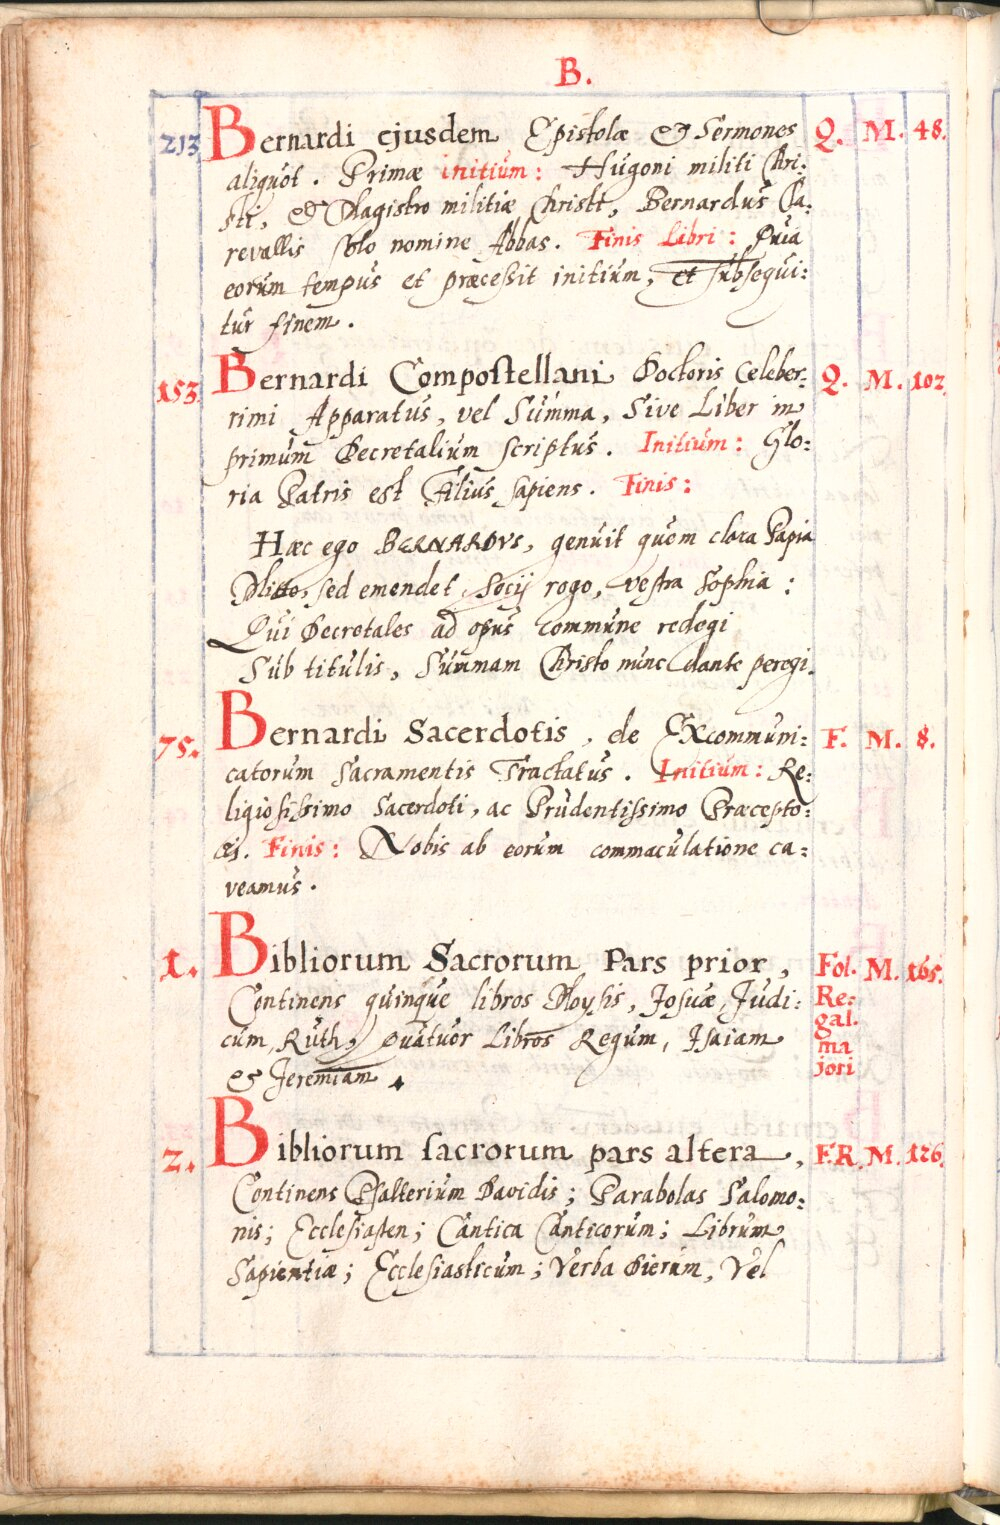 B.
213 Bernardi ejusdem Epistolæ & Sermones Q. M. 48.
aliquot. Primæ initium: Hugoni militi Chri:
sti, & Magistro militiæ Christi, Bernardus Cla:
revallis solo nomine Abbas. Finis Libri: Quia
eorum tempus et præcessit initium, et subsequi:
tur finem.
153. Bernardi Compostellani Doctoris Celeber: Q. M. 102.
rimi Apparatus, vel Summa, Sive Liber in
primum Decretalium scriptus. Initium: Glo:
ria Patris est Filius sapiens. Finis:
Hæc ego BERNARDVS, genuit quem clara Papia
Mitto, sed emendet Socij rogo, vestra Sophia:
Qui Decretales ad opus commune redegi
Sub titulis, Summam Christo nunc dante peregi.
75. Bernardi Sacerdotis, de Excommuni: F. M. 8.
catorum Sacramentis Tractatus. Initium: Re:
ligiosissimo Sacerdoti, ac Prudentissimo Præcepto:
Finis: Nobis ab eorum commaculatione ca:
veamus.
1. Bibliorum Sacrorum Pars prior, Fol. M. 165.
Continens quinque libros Moysis, Josuæ, Judi: Re:
cum, Ruth, Quatuor Libros Regum, Isaiam gal.
& Jeremiam. ma
jori
2. Bibliorum sacrorum pars altera, F.R. M. 126.
Continens Psalterium Davidis; Parabolas Salomo:
nis; Ecclesiasten; Cantica Canticorum; Librum
Sapientiæ; Ecclesiasticum; Verba Dierum, Vel